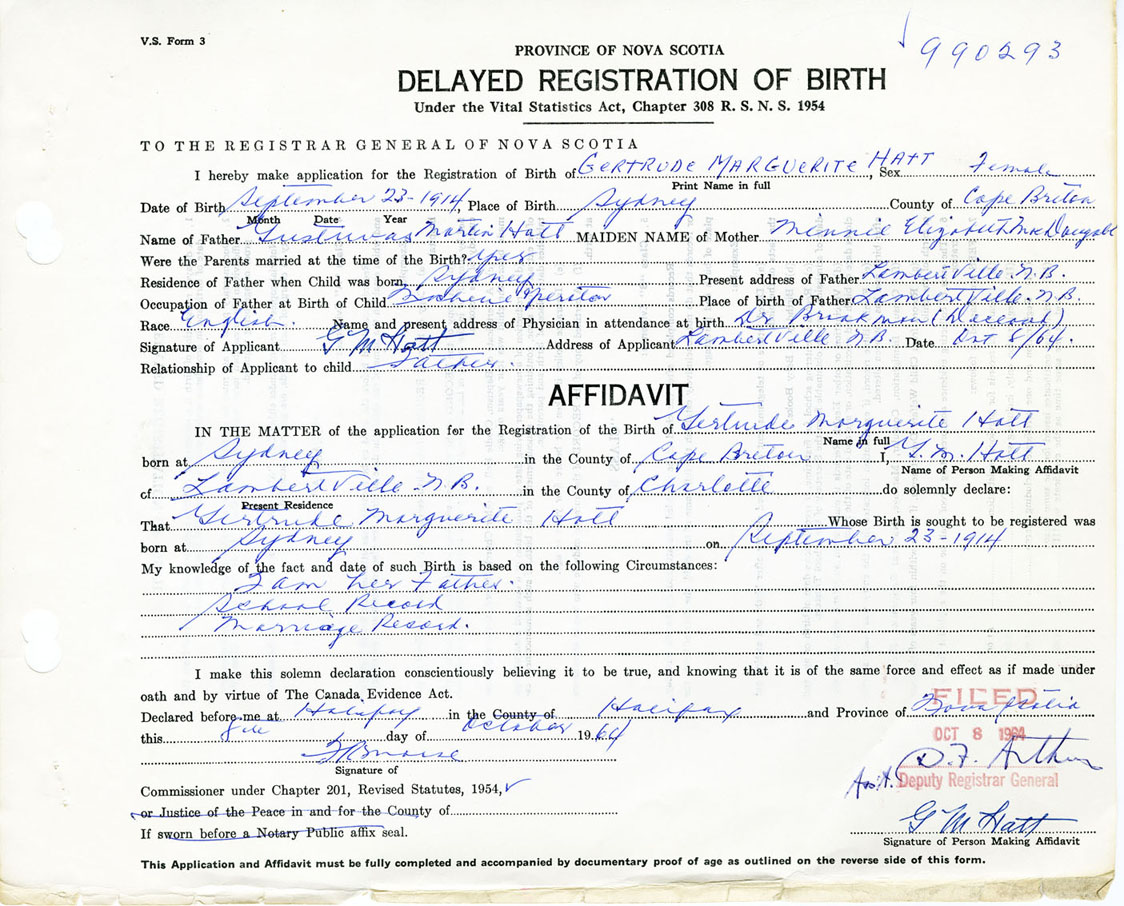 V.S. Form 3
990293
PROVINCE OF NOVA SCOTIA
DELAYED REGISTRATION OF BIRTH
Under the Vital Statistics Act, Chapter 308 R. S. N. S. 1954
TO THE REGISTRAR GENERAL OF NOVA SCOTIA
I hereby make application for the Registration of Birth of GERTRUDE MARGUERITE HATT, Sex Female
Print Name in full
Date of Birth September 23-1914, Place of Birth Sydney County of Cape Breton
Month Date Year
Name of Father Martin Hatt MAIDEN NAME of Mother Minnie Elizabeth
Were the Parents married at the time of the Birth? yes
Residence of Father when Child was born, Sydney Present address of Father Lambertville N.B.
Occupation of Father at Birth of Child Place of birth of Father Lambertville N.B.
Race English. Name and present address of Physician in attendance at birth Dr
Signature of Applicant G M Hatt Address of Applicant Lambertville N.B. Date Oct 8/64.
Relationship of Applicant to child Father.
AFFIDAVIT
IN THE MATTER of the application for the Registration of the Birth of Gertrude Marguerite Hatt
Name in full
born at Sydney in the County of Cape Breton I, G. M. Hatt
Name of Person Making Affidavit
of Lambertville N.B. in the County of Charlotte do solemnly declare:
Present Residence
That Gertrude Marguerite Hatt Whose Birth is sought to be registered was
born at Sydney on September 23-1914
My knowledge of the fact and date of such Birth is based on the following Circumstances:
I am her Father.
School Record
Marriage Record.
I make this solemn declaration conscientiously believing it to be true, and knowing that it is of the same force and effect as if made under
oath and by virtue of The Canada Evidence Act.
Declared before me at Halifax in the County of Halifax and Province of Nova Scotia
this 8th day of October 1964
FILED
OCT 8 1964
D. F. Arthur
Asst. Deputy Registrar General
Signature of
Commissioner under Chapter 201, Revised Statutes, 1954,
or Justice of the Peace in and for the County of
If sworn before a Notary Public affix seal.
G M Hatt
Signature of Person Making Affidavit
This Application and Affidavit must be fully completed and accompanied by documentary proof of age as outlined on the reverse side of this form.